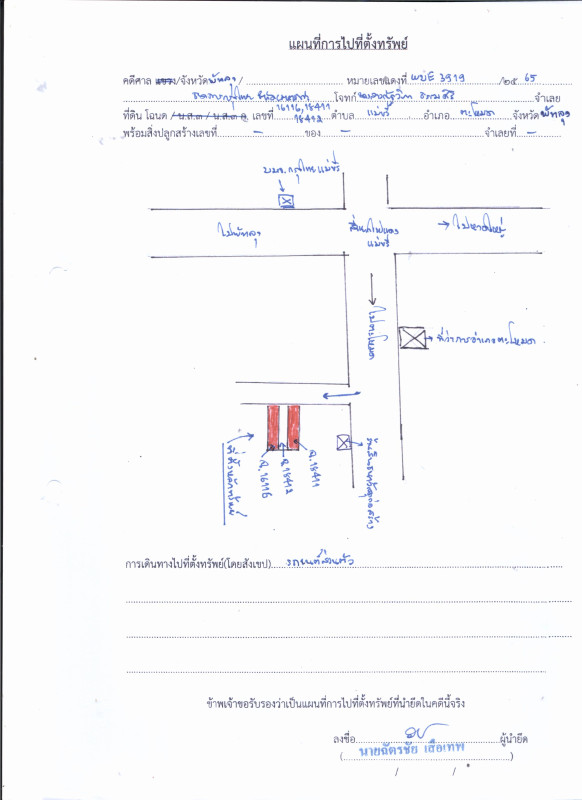 แผนที่การไปที่ตั้งทรัพย์
คดีศาล แขวง/จังหวัด พัทลุง / หมายเลขแดงที่ ผบE 3919 /๒๕ 65
โจทก์ จำเลย
ที่ดิน โฉนด / น.ส.๓ / น.ส.๓ ก. เลขที่ 16116, 18411 18412 ตำบล แม่ขรี อำเภอ ตะโหมด จังหวัด พัทลุง
พร้อมสิ่งปลูกสร้างเลขที่ - ของ - จำเลยที่ -
บมจ. กรุงไทย แม่ขรี
ไปพัทลุง
สี่แยกไฟแดง
แม่ขรี
→ ไปหาดใหญ่
ไปตะโหมด
ที่ว่าการอำเภอตะโหมด
ที่ตั้งหลักทรัพย์
ฉ.16116
ฉ.18412
ฉ.18411
การเดินทางไปที่ตั้งทรัพย์(โดยสังเขป) รถยนต์ส่วนตัว
ข้าพเจ้าขอรับรองว่าเป็นแผนที่การไปที่ตั้งทรัพย์ที่นำยึดในคดีนี้จริง
ลงชื่อ ผู้นำยึด
(นายฉัตรชัย เสือเทพ)
/ /